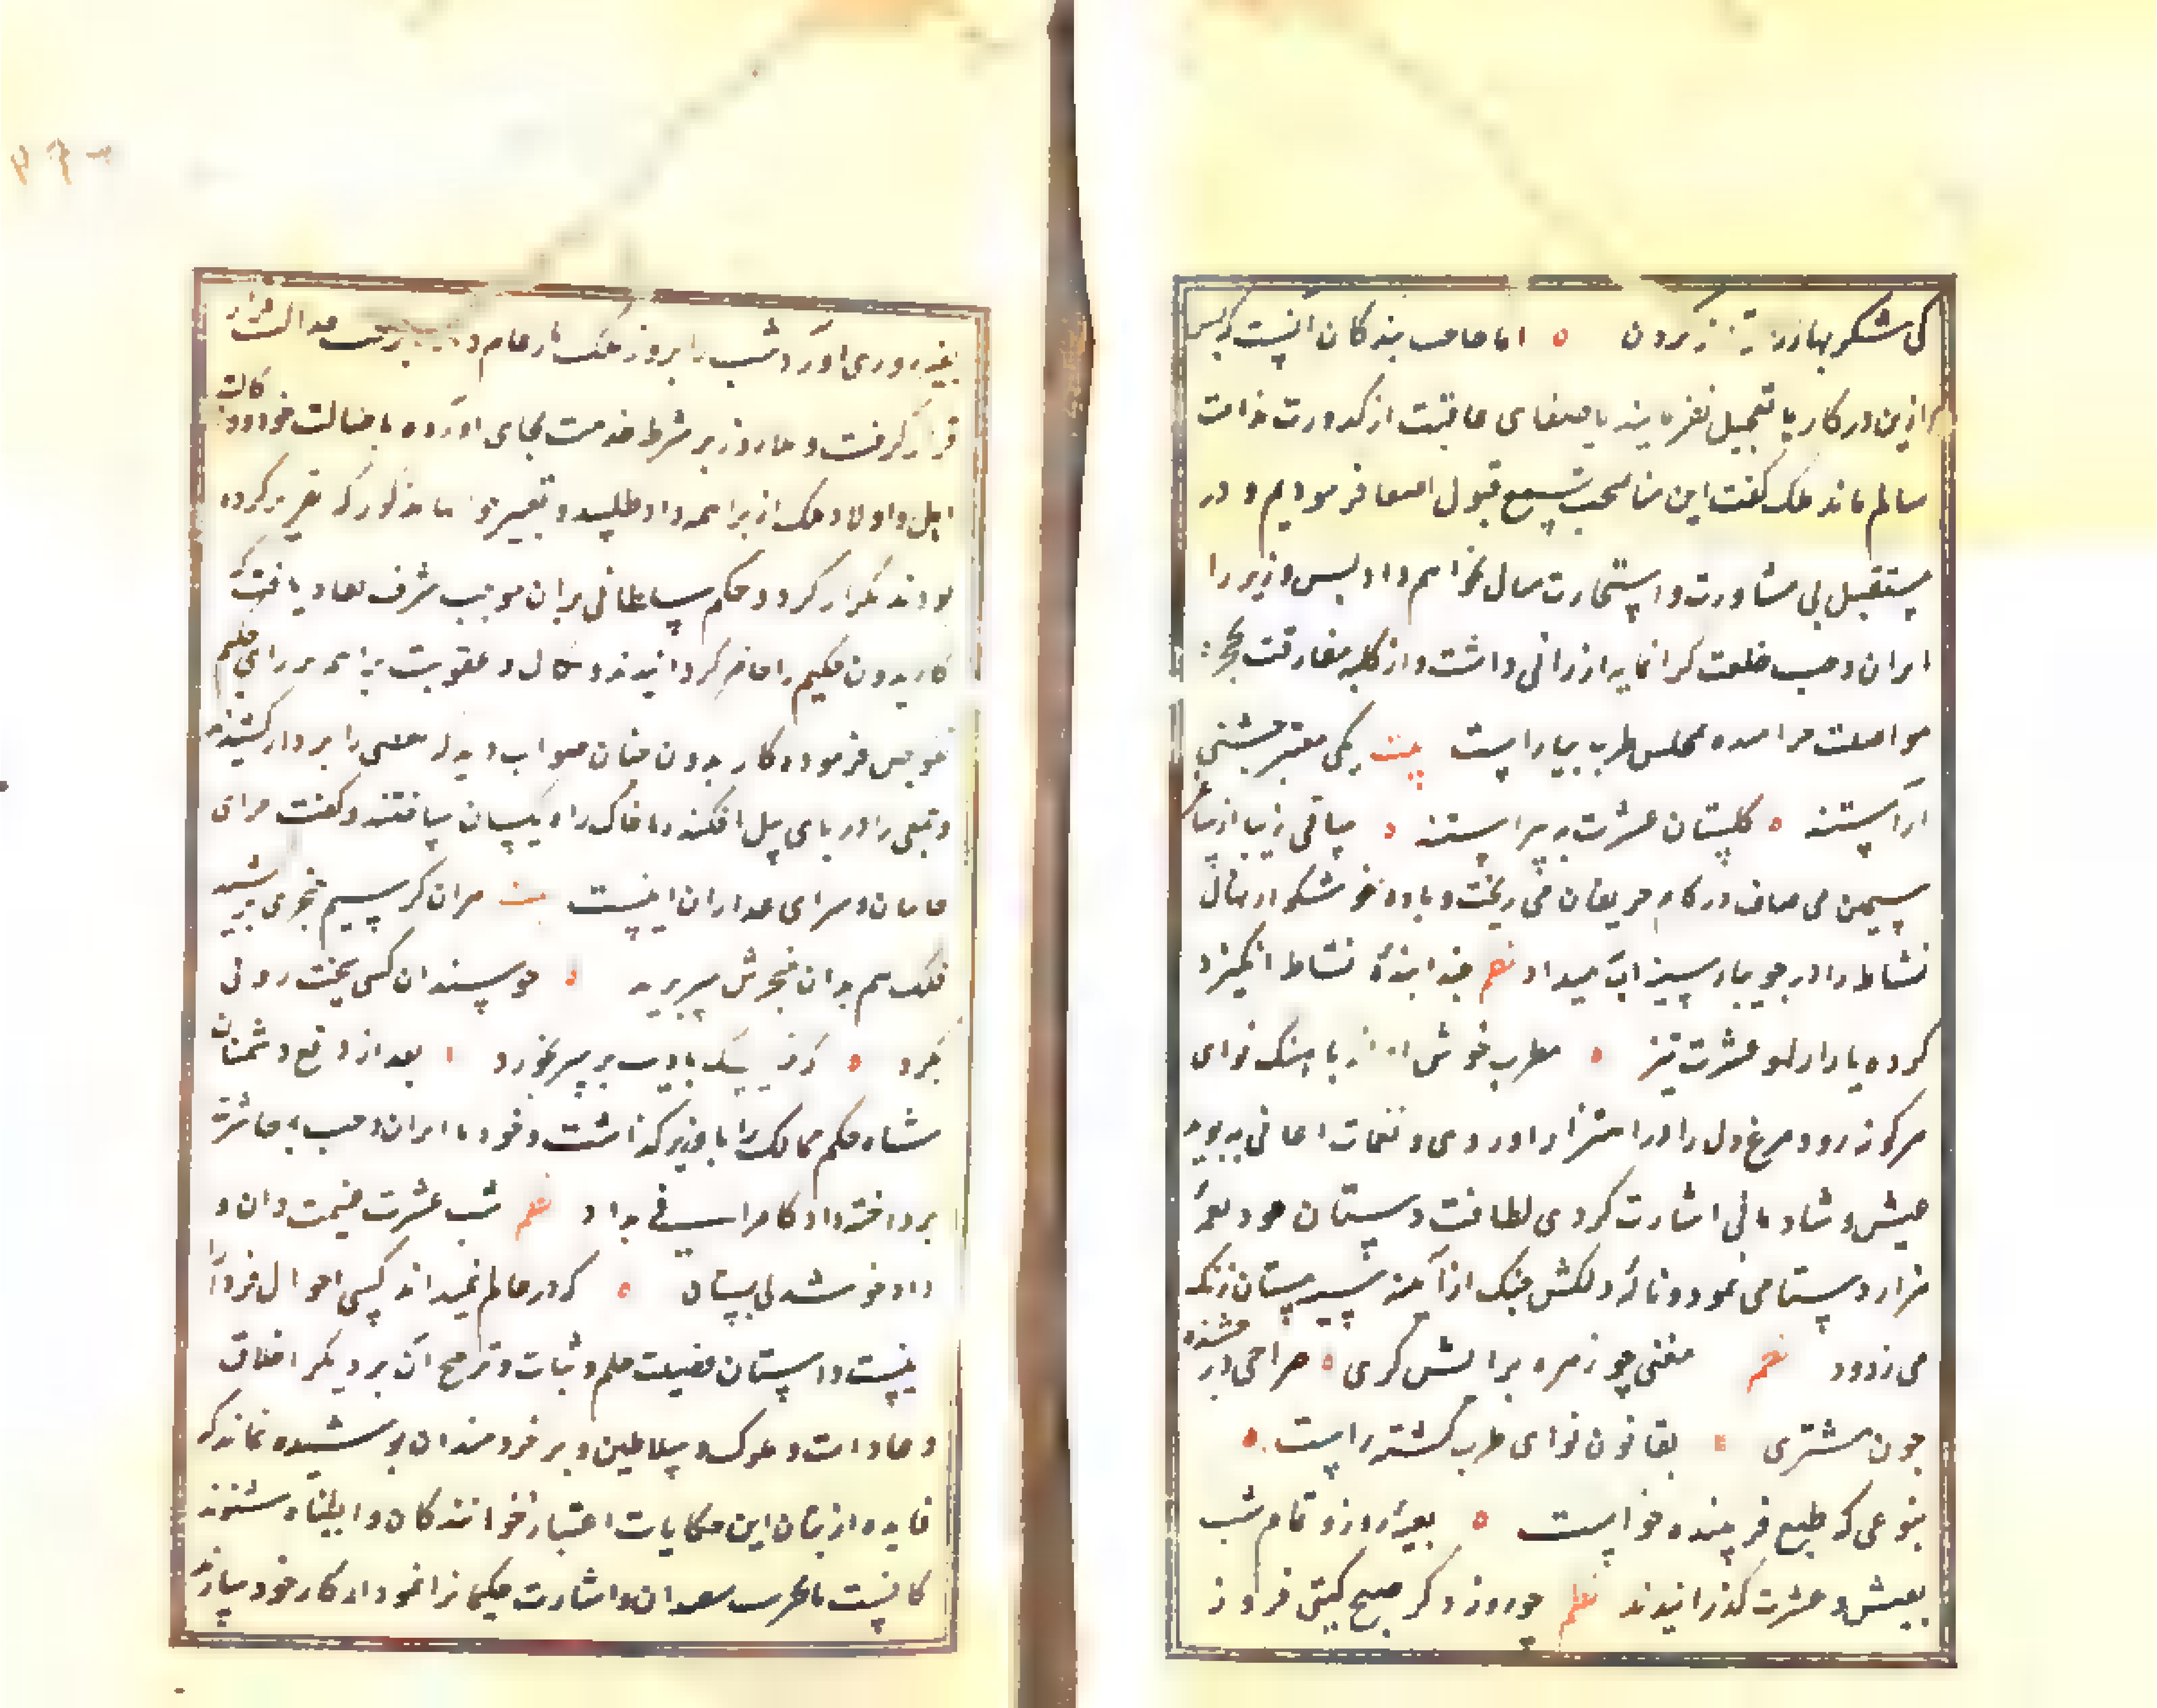 کی شکر بهار زیان کردن ه اما حاجب بندکان آنست که پس
ازین در کار با تعجیل نفرمایند با صفای عاقبت از کدورت ندامت
سالم ماند ملک کفت این مناصحت بسمع قبول اصغا فرمودیم و در
مستقبل بی مشاورت و استخارت مثال نخواهیم داد پس وزیر را
ایران دخت خلعت کرانمایه ارزانی داشت و از کلبه مفارقت بحجره
مواصلت خرامیده مجلس طرب بیاراست بیت یکی معتبر جشنی
آراستند ه کلستان عشرت بپیراستند ه ساقی زیبا از ساق
سیمین می صاف در کام حریفان می ریخت و باده خوشکوار نهال
نشاط را در جویبار سینه آب میداد نظم خنده نشاط انکیز
کرده بازار لهو عشرت تیز ه مطرب خوش آواز باهنک نوای
رود مرغ دل را در اهتزاز آوردی و نغمات اغانی بنوید
عیش و شادمانی اشارت کردی لطافت دستان عود نغمه
هزار دستان می نمود و ناله دلکش چنک از آینه سینه مستان زنک
می زدود نظم مغنی چو زهره برامش کری ه صراحی درخشنده
چون مشتری ه بقانون نوای طرب کشته راست ه
بنوعی که طبع فریبنده خواست ه بقیه روز و تمام شب
بعیش و عشرت کذرانیدند نظم چو روز دکر صبح کیتی فروز
بفیروزی آورد شب را بروز ملک بار عام داد و بر تخت عدالت
قرار کرفت و کار وزیر شرط خدمت بجای آورده باصالت خود و وکالت
اهل و اولاد ملک از براهمه داد طلبید و تعبیر خواب مذکور که تقریر کرده
بودند تکرار کرد و حکم سلطانی بران موجب شرف نفاذ یافت که
کاریدون حکیم را حاضر کردانیدند و نکال و عقوبت براهمه برای حکیم
تفویض فرمود و کاریدون چنان صواب دید که بعضی را بر دار کشیدند
و بعضی را در پای پیل افکنده با خاک راه یکسان ساختند و کفت جزای
خاینان و سزای غداران اینست بیت هر آن کز ستم خنجری بر کشید
فلک هم بدان خنجرش سر برید ه چو سندان کسی سخت رویی
نکرد ه که خایسک تادیب بر سر نخورد ه بعد از دفع دشمنان
شاه حکم ممالک را با وزیر کذاشت و خود با ایران دخت بمعاشرت
پرداخته داد کامرانی بداد نظم شب عشرت غنیمت دان و
داد خوشدلی بستان ه که در عالم نمیداند کسی احوال فردا را
اینست داستان فضیلت حلم و ثبات و ترجیح آن بر دیکر اخلاق
و عادات و ملوک و سلاطین و بر خردمندان پوشیده نماند که
فایده از بیان این حکایات اعتبار خوانندکان و ایقاظ شنوندکانست
تا تجربت و اشارت حکیمان را نمودار کار خود سازند